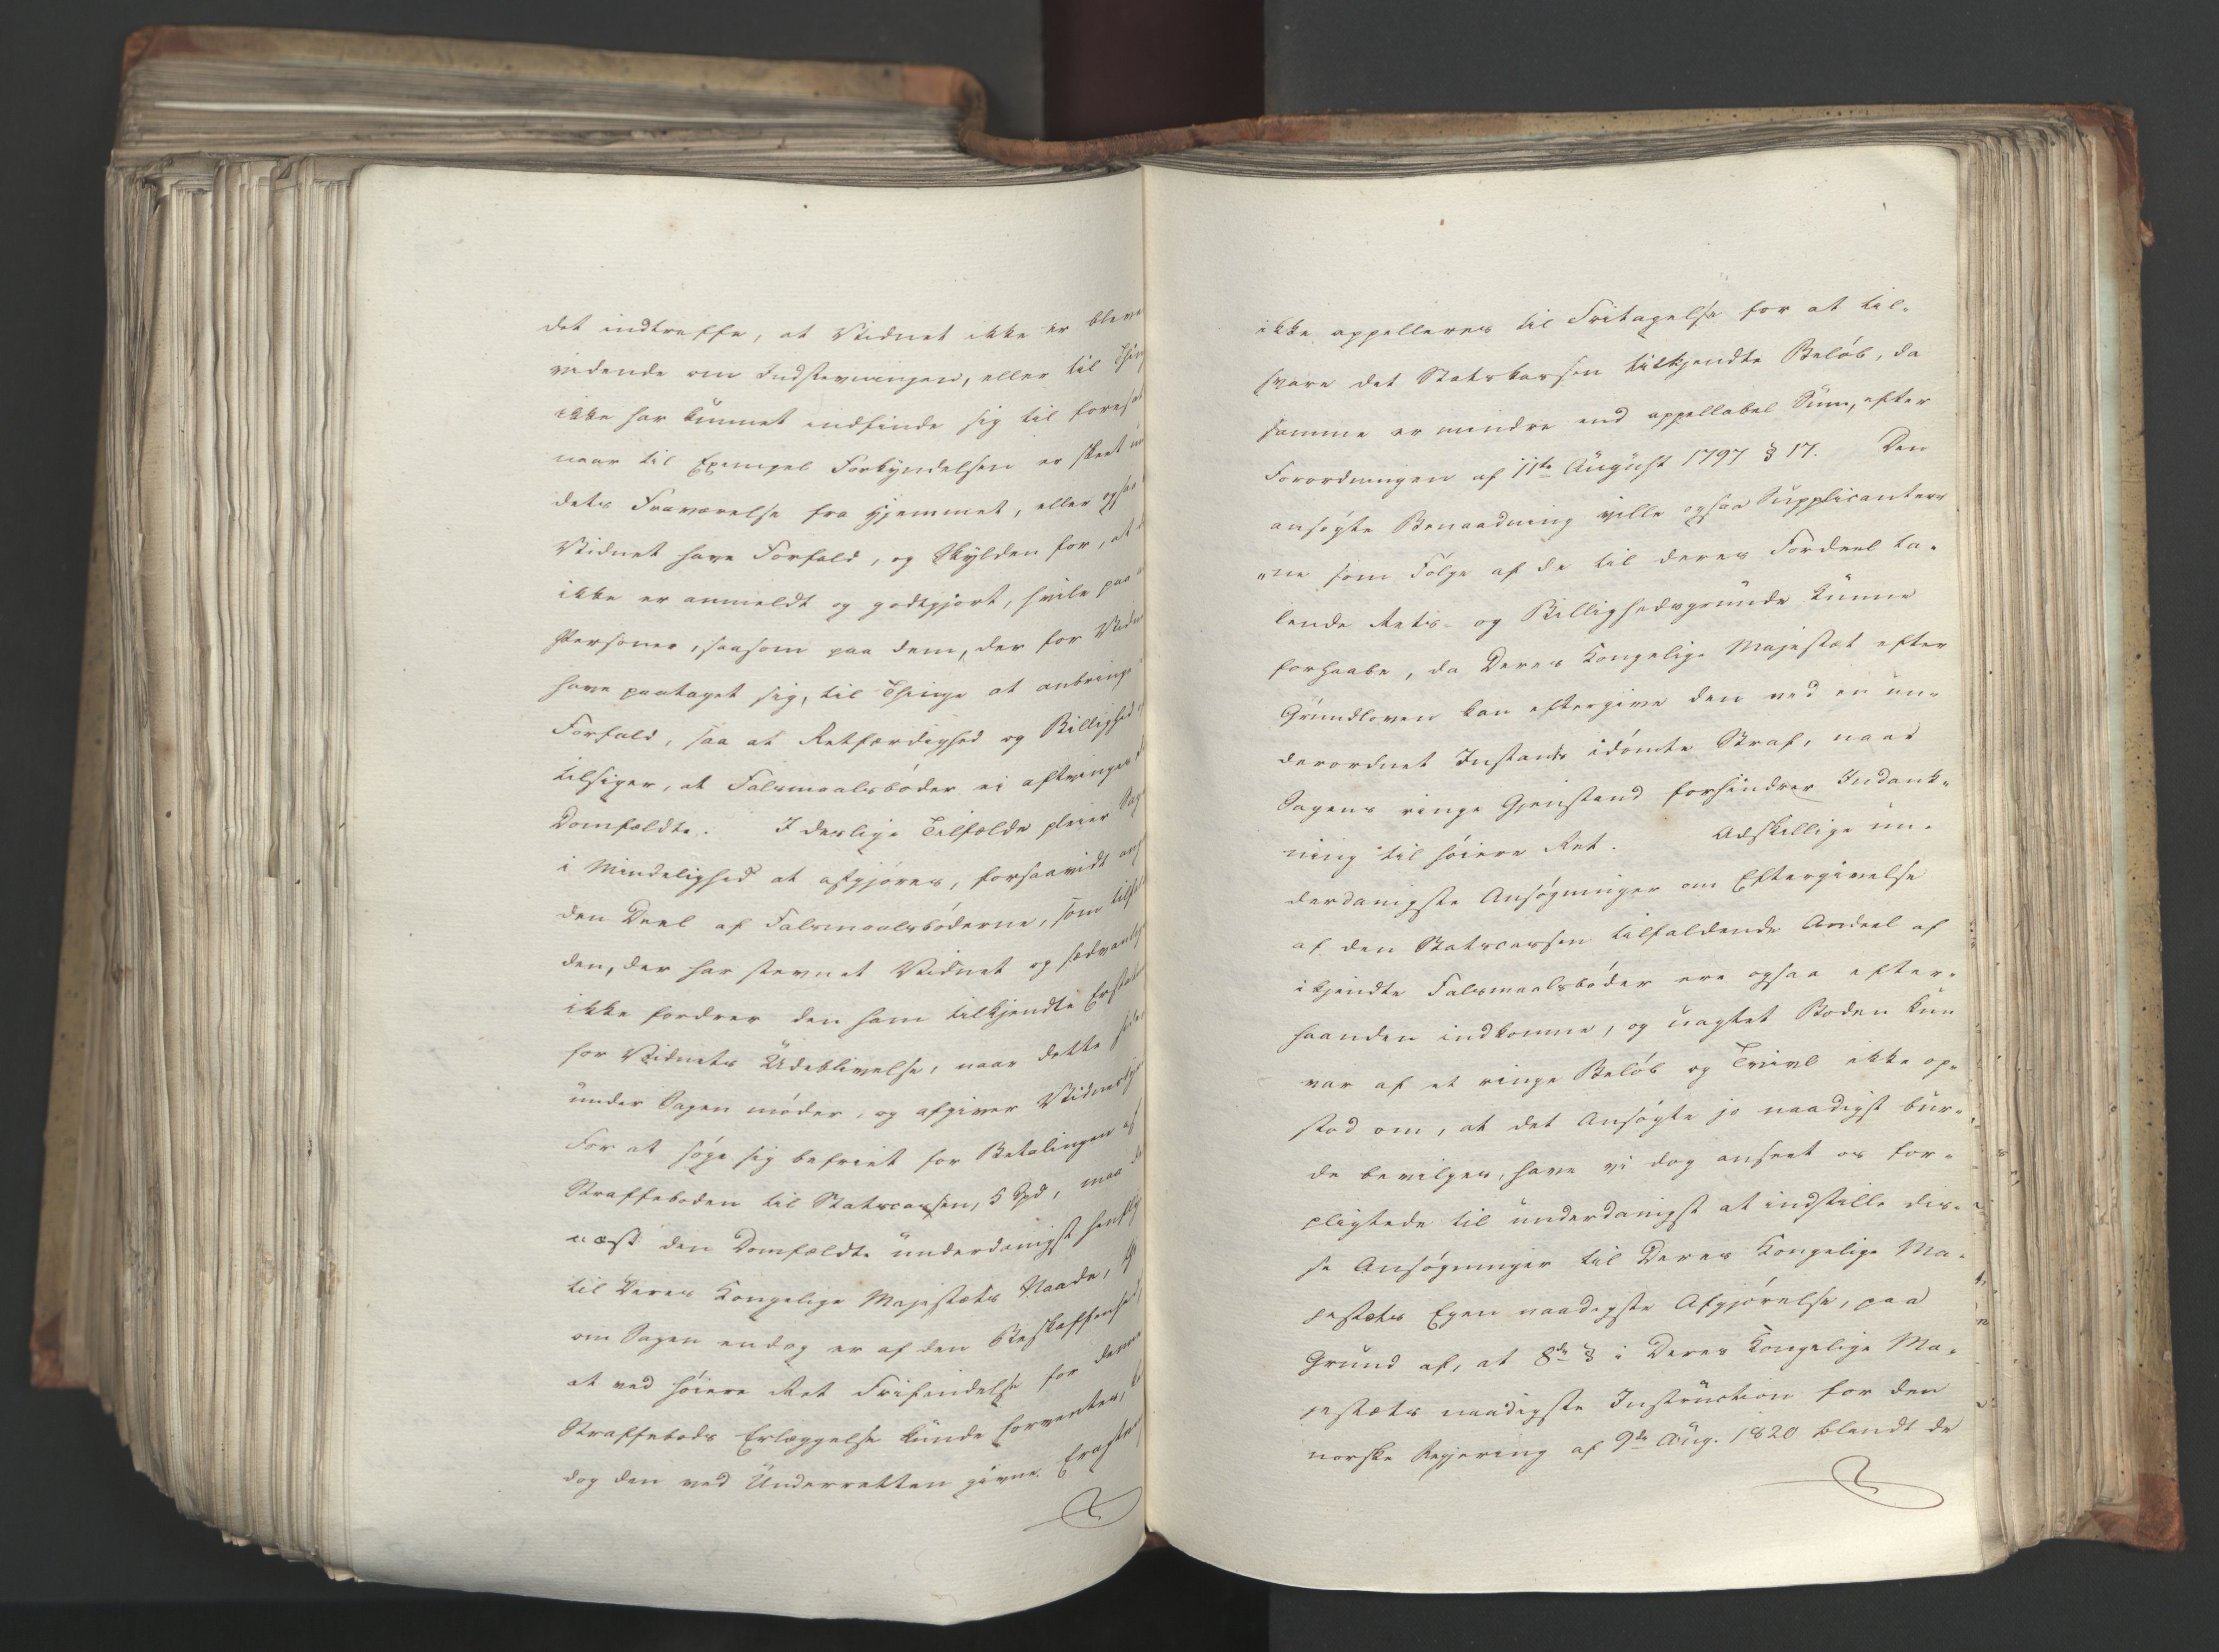 det indtræffe, at Vidnet ikke er bleve
vidende om Indstevningen, eller til Thin
ikke har kunnet indfinde sig til foresat
naar til Exempel Forkyndelsen er skeet un
dets Fraværelse fra Hjemmet, eller ogsaa
Vidnet have Forfald, og Skylden for, at
ikke er anmeldt og godtgjort, hvile paa
Personer, saasom paa dem, der for Vidn
have paataget sig, til Thinge at anbringe
Forfald, saa at Retfærdighed og Billighed
tilsiger, at Falsmaalsbøder ei aftvinges
Domfældte. I deslige Tilfælde pleier Sag
i Mindelighed at afgjøres, forsaavidt ang
den Deel af Falsmaalsbøderne, som tilf
den, der har stevnet Vidnet og sædvanlig
ikke fordrer den ham tilkjendte Erstat
for Vidnets Udeblivelse, naar dette siden
under Sagen møder, og afgiver Vidnesby
For at søge sig befriet for Betalingen af
Straffeboden til Statscassen, 5 Spd, maa
næst den Domfældte underdanigst henfly
til Deres Kongelige Majestæts Naade,
om Sagen endog er af den Beskaffenhed
at ved høiere Ret Frifindelse for denne
Straffebods Erlæggelse kunde forventes,
dog den ved Underretten givne Eragtn
ikke appelleres til Fritagelse for at til-
svare det Statskassen tilkjendte Beløb, da
samme er mindre end appellabel Sum, efter
Forordningen af 11te August 1797 § 17. Den
ansøgte Benaadning ville ogsaa Supplicanter-
"ne som Følge af de til deres Fordeel ta-
lende Rets- og Billighedsgrunde kunne
forhaabe, da Deres Kongelige Majestæt efter
Grundloven kan eftergive den ved en un-
derordnet Instants idømte Straf, naar
Sagens ringe Gjenstand forhindrer Indank-
ning til høiere Ret. Adskillige un-
derdanigste Ansøgninger om Eftergivelse
af den Statscassen tilfaldende Andeel af
ikjendte Falsmaalsbøder ere ogsaa efter-
haanden indkomne, og uagtet Boden kun
var af et ringe Beløb og Tvivl ikke op-
stod om, at det Ansøgte jo naadigst bur-
de bevilges, have vi dog anseet os for-
pligtede til underdanigst at indstille dis-
se Ansøgninger til Deres Kongelige Ma-
jestæts Egen naadigste Afgjørelse, paa
Grund af, at 8de § i Deres Kongelige Ma-
jestæts naadigste Instruction for den
norske Regjering af 9de Aug. 1820 blandt de